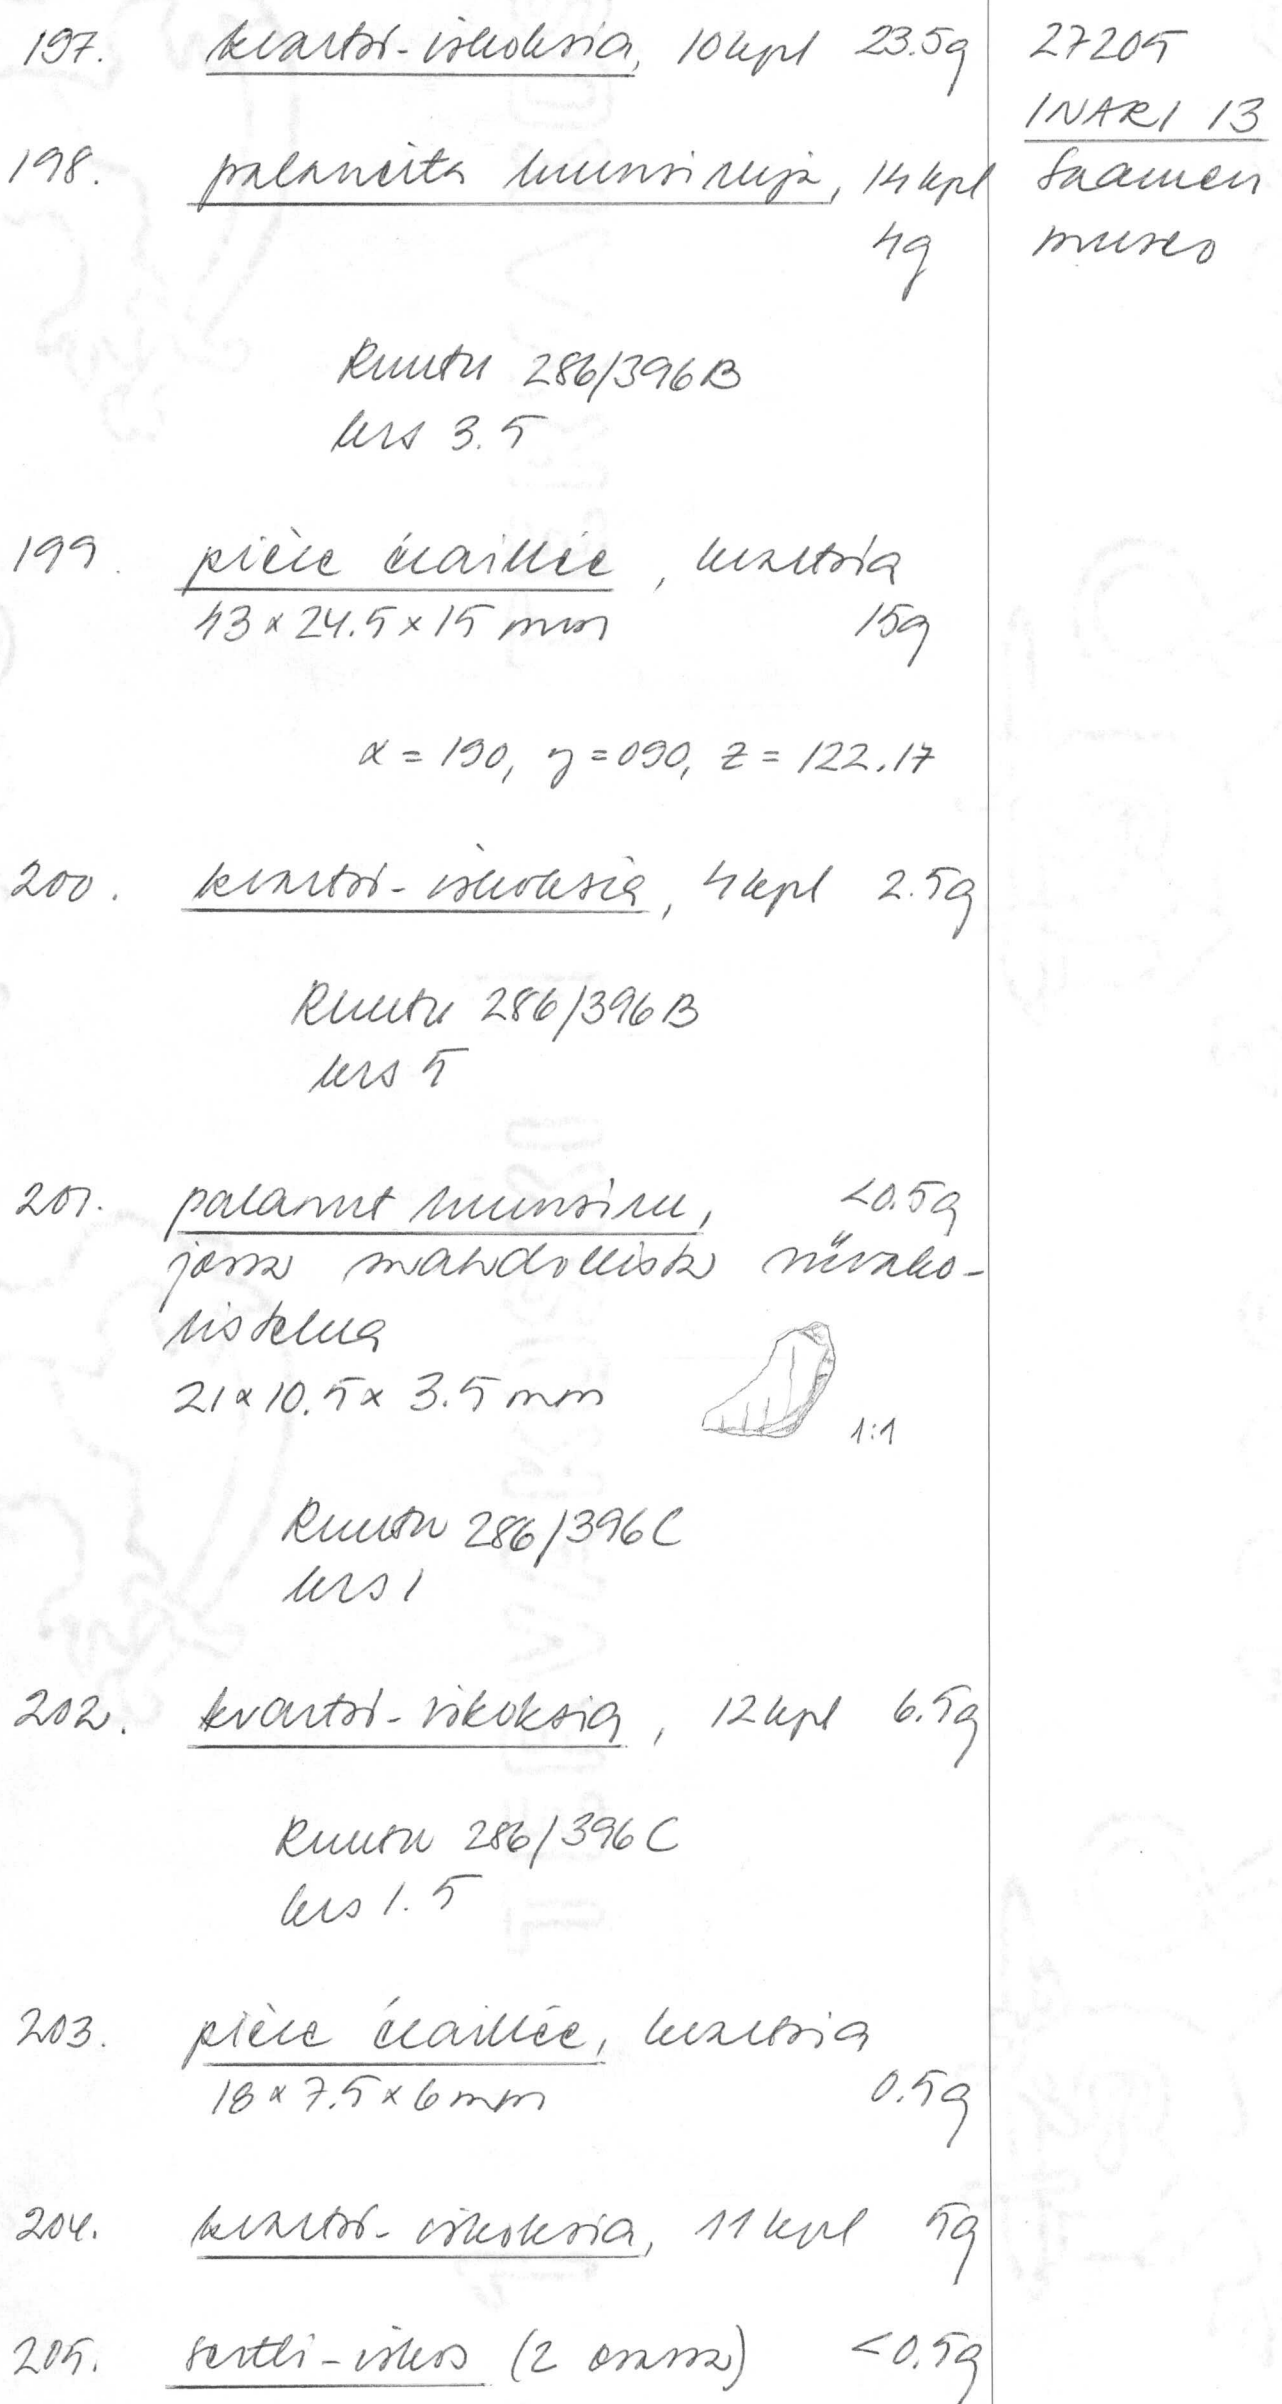 197. kvartsi-iskoksia, 10 kpl 23.5g
27205
INARI 13
Saamen
museo
198. palaneita luunsiruja, 14 kpl
4g
Ruutu 286/396B
krs 3.5
199. pièce écaillée, kvartsia
43 x 24.5 x 15 mm 15g
x = 190, y = 090, z = 122.17
200. kvartsi-iskoksia, 4 kpl 2.5g
Ruutu 286/396B
krs 5
201. palanut luunsiru, <0.5g
jossa mahdollista viivako-
ristelua
21 x 10.5 x 3.5 mm
1:1
Ruutu 286/396C
krs 1
202. kvartsi-iskoksia, 12 kpl 6.5g
Ruutu 286/396C
krs 1.5
203. pièce écaillée, kvartsia
18 x 7.5 x 6 mm 0.5g
204. kvartsi-iskoksia, 11 kpl 5g
205. sertti-iskos (2 osassa) <0.5g